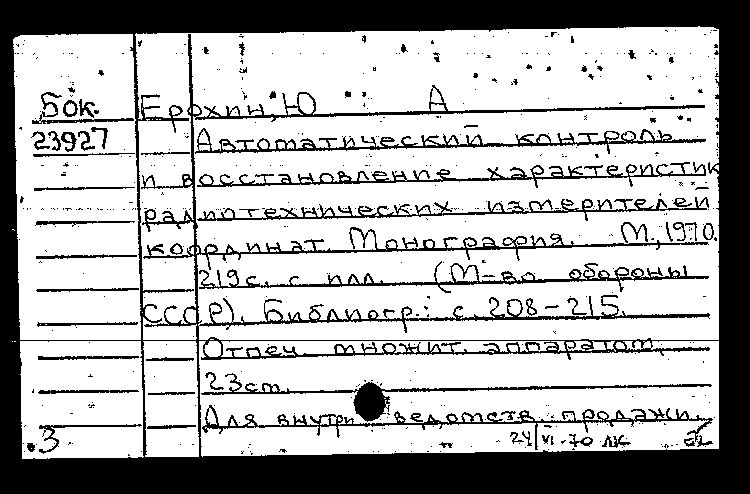 Бок. Ерохин, Ю А
23927 Автоматический контроль
и восстановление характеристик
радиотехнических измерителей
координат. Монография. М., 1970.
219с. с илл. (М-во обороны
СССР). Библиогр.: с. 208-215.
Отпеч. множит. аппаратом,
23см.
Для внутриведомств. продажи.
3 24/VI-70